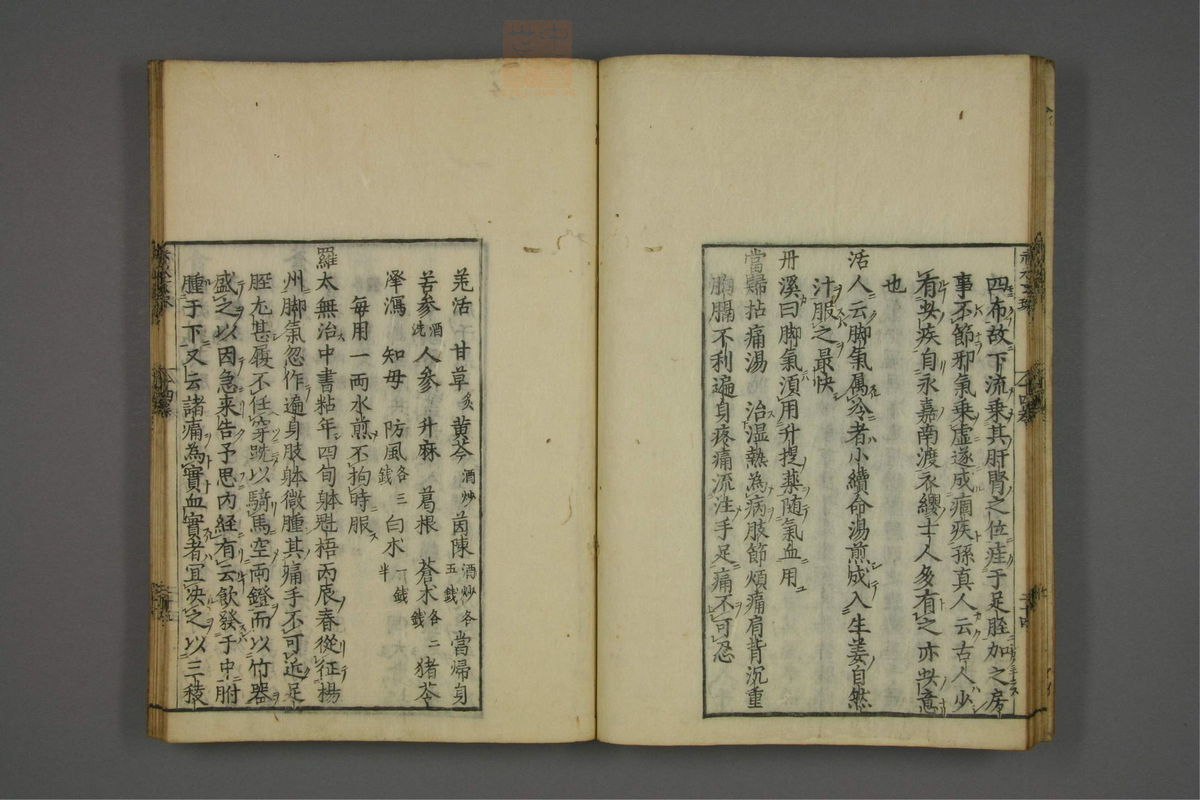 四布故下流乗其肝腎之位㽸于足脛加之房
事不節邪氣乗虛遂成痼疾孫真人云古人少
有此疾自永嘉南渡衣纓士人多有之亦此意
也
活人云脚氣属冷者小續命湯煎成入生姜自然
汁服之最快
丹溪曰脚氣須用升提薬随氣血用
當歸拈痛湯 治湿熱為病肢節煩痛肩背沉重
胸膈不利遍身疼痛流注手足痛不可忍
羗活 甘草炙 黄芩酒炒 茵陳酒炒各五錢 當歸身
苦参酒洗 人参 升麻 葛根 蒼术各二錢 猪苓
澤瀉 知母 防風各三錢 白术一錢半
每用一兩水煎不拘時服
羅太無治中書粘年四旬躰魁梧丙辰春從征楊
州脚氣忽作遍身肢躰微腫其痛手不可近足
脛尤甚履不任穿跣以騎馬空両鐙而以竹器
盛之以因急来告予思内経有云飲發于中胕
腫于下又云諸痛為實血實者宜决之以三稜